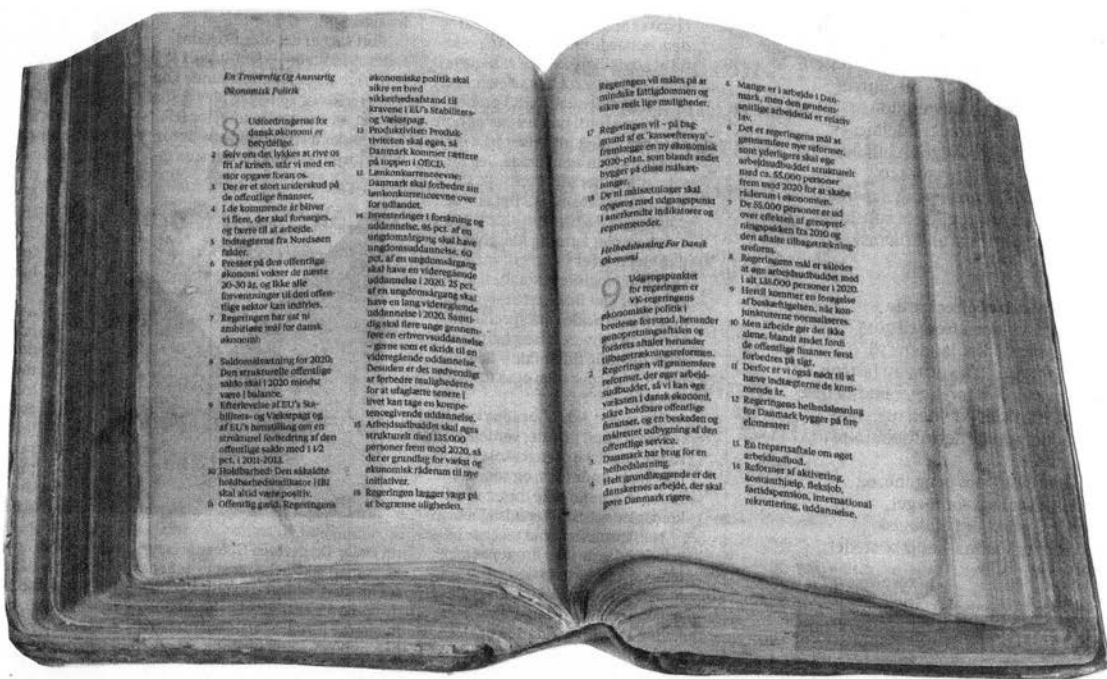 En Troværdig Og Ansvarlig
Økonomisk Politik
8 Udfordringerne for
dansk økonomi er
betydelige.
2 Selv om det lykkes at rive os
fri af krisen, står vi med en
stor opgave foran os.
3 Der er et stort underskud på
de offentlige finanser.
4 I de kommende år bliver
vi flere, der skal forsørges,
og færre til at arbejde.
5 Indtægterne fra Nordsøen
falder.
6 Presset på den offentlige
økonomi vokser de næste
20-30 år, og ikke alle
forventninger til den offen-
tlige sektor kan indfries.
7 Regeringen har sat ni
ambitiøse mål for dansk
økonomi:
8 Saldomålsætning for 2020:
Den strukturelle offentlige
saldo skal i 2020 mindst
være i balance.
9 Efterlevelse af EU's Sta-
bilitets- og Vækstpagt og
af EU's henstilling om en
strukturel forbedring af den
offentlige saldo med 1 1/2
pct. i 2011-2013.
10 Holdbarhed: Den såkaldte
holdbarhedsindikator (HBI)
skal altid være positiv.
11 Offentlig gæld. Regeringens
økonomiske politik skal
sikre en bred
sikkerhedsafstand til
kravene i EU's Stabilitets-
og Vækstpagt.
12 Produktivitet: Produk-
tiviteten skal øges, så
Danmark kommer tættere
på toppen i OECD.
13 Lønkonkurrenceevne:
Danmark skal forbedre sin
lønkonkurrenceevne over
for udlandet.
14 Investeringer i forskning og
uddannelse. 95 pct. af en
ungdomsårgang skal have
en ungdomsuddannelse. 60
pct. af en ungdomsårgang
skal have en videregående
uddannelse i 2020. 25 pct.
af en ungdomsårgang skal
have en lang videregående
uddannelse i 2020. Samti-
dig skal flere unge gennem-
føre en erhvervsuddannelse
– gerne som et skridt til en
videregående uddannelse.
Desuden er det nødvendigt
at forbedre mulighederne
for at ufaglærte senere i
livet kan tage en kompe-
tencegivende uddannelse.
15 Arbejdsudbuddet skal øges
strukturelt med 135.000
personer frem mod 2020, så
der er grundlag for vækst og
økonomisk råderum til nye
initiativer.
16 Regeringen lægger vægt på
at begrænse uligheden.
Regeringen vil måles på at
mindske fattigdommen og
sikre reelt lige muligheder.
17 Regeringen vil – på bag-
grund af et "kasseeftersyn" –
fremlægge en ny økonomisk
2020-plan, som blandt andet
bygger på disse målsæt-
ninger.
18 De ni målsætninger skal
opgøres med udgangspunkt
i anerkendte indikatorer og
regnemetoder.
Helhedsløsning For Dansk
Økonomi
9 Udgangspunktet
for regeringen er
VK-regeringens
økonomiske politik i
bredeste forstand, herunder
genopretningsaftalen og
forårets aftaler herunder
tilbagetrækningsreformen.
2 Regeringen vil gennemføre
reformer, der øger arbejd-
sudbuddet, så vi kan øge
væksten i dansk økonomi,
sikre holdbare offentlige
finanser, og en beskeden og
målrettet udbygning af den
offentlige service.
3 Danmark har brug for en
helhedsløsning.
4 Helt grundlæggende er det
danskernes arbejde, der skal
gøre Danmark rigere.
5 Mange er i arbejde i Dan-
mark, men den gennem-
snitlige arbejdstid er relativ
lav.
6 Det er regeringens mål at
gennemføre nye reformer,
som yderligere skal øge
arbejdsudbuddet strukturelt
med ca. 55.000 personer
frem mod 2020 for at skabe
råderum i økonomien.
7 De 55.000 personer er ud
over effekten af genopret-
ningspakken fra 2010 og
den aftalte tilbagetrækning-
sreform.
8 Regeringens mål er således
at øge arbejdsudbuddet med
i alt 135.000 personer i 2020.
9 Hertil kommer en forøgelse
af beskæftigelsen, når kon-
junkturerne normaliseres.
10 Men arbejde gør det ikke
alene, blandt andet fordi
de offentlige finanser først
forbedres på sigt.
11 Derfor er vi også nødt til at
hæve indtægterne de kom-
mende år.
12 Regeringens helhedsløsning
for Danmark bygger på fire
elementer:
13 En trepartsaftale om øget
arbejdsudbud.
14 Reformer af aktivering,
kontanthjælp, fleksjob,
førtidspension, international
rekruttering, uddannelse,